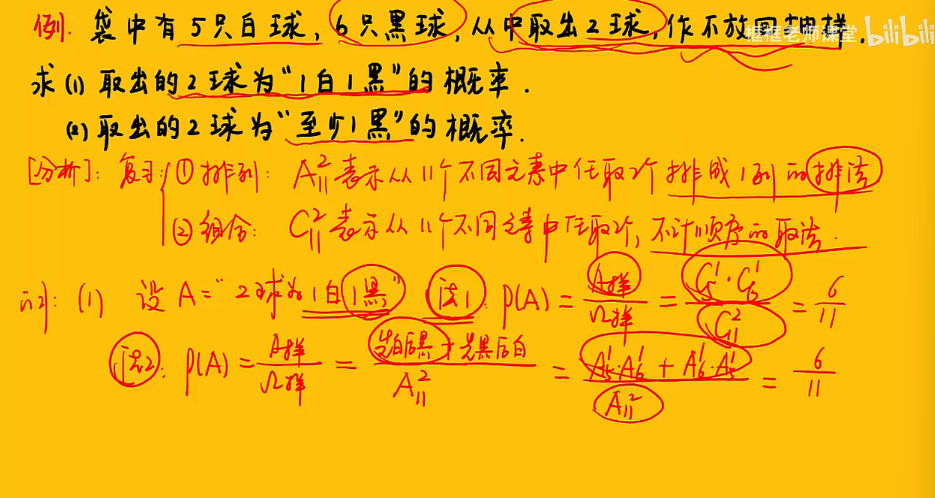 例. 袋中有5只白球, 6只黑球, 从中取出2球, 作不放回抽样.
框框老师课堂 bilibili
求(1) 取出的2球为"1白1黑"的概率.
(2) 取出的2球为"至少1黑"的概率.
[分析]: 复习 ① 排列: A₁₁² 表示从11个不同元素中任取2个排成1列的排法
② 组合: C₁₁² 表示从11个不同元素中任取2个, 不计顺序的取法.
解: (1) 设A="2球为1白1黑" 法1: P(A) = A样/Ω样 = C₅¹·C₆¹/C₁₁² = 6/11
法2: P(A) = A样/Ω样 = 先白后黑+先黑后白/A₁₁² = A₅¹·A₆¹ + A₆¹·A₅¹/A₁₁² = 6/11